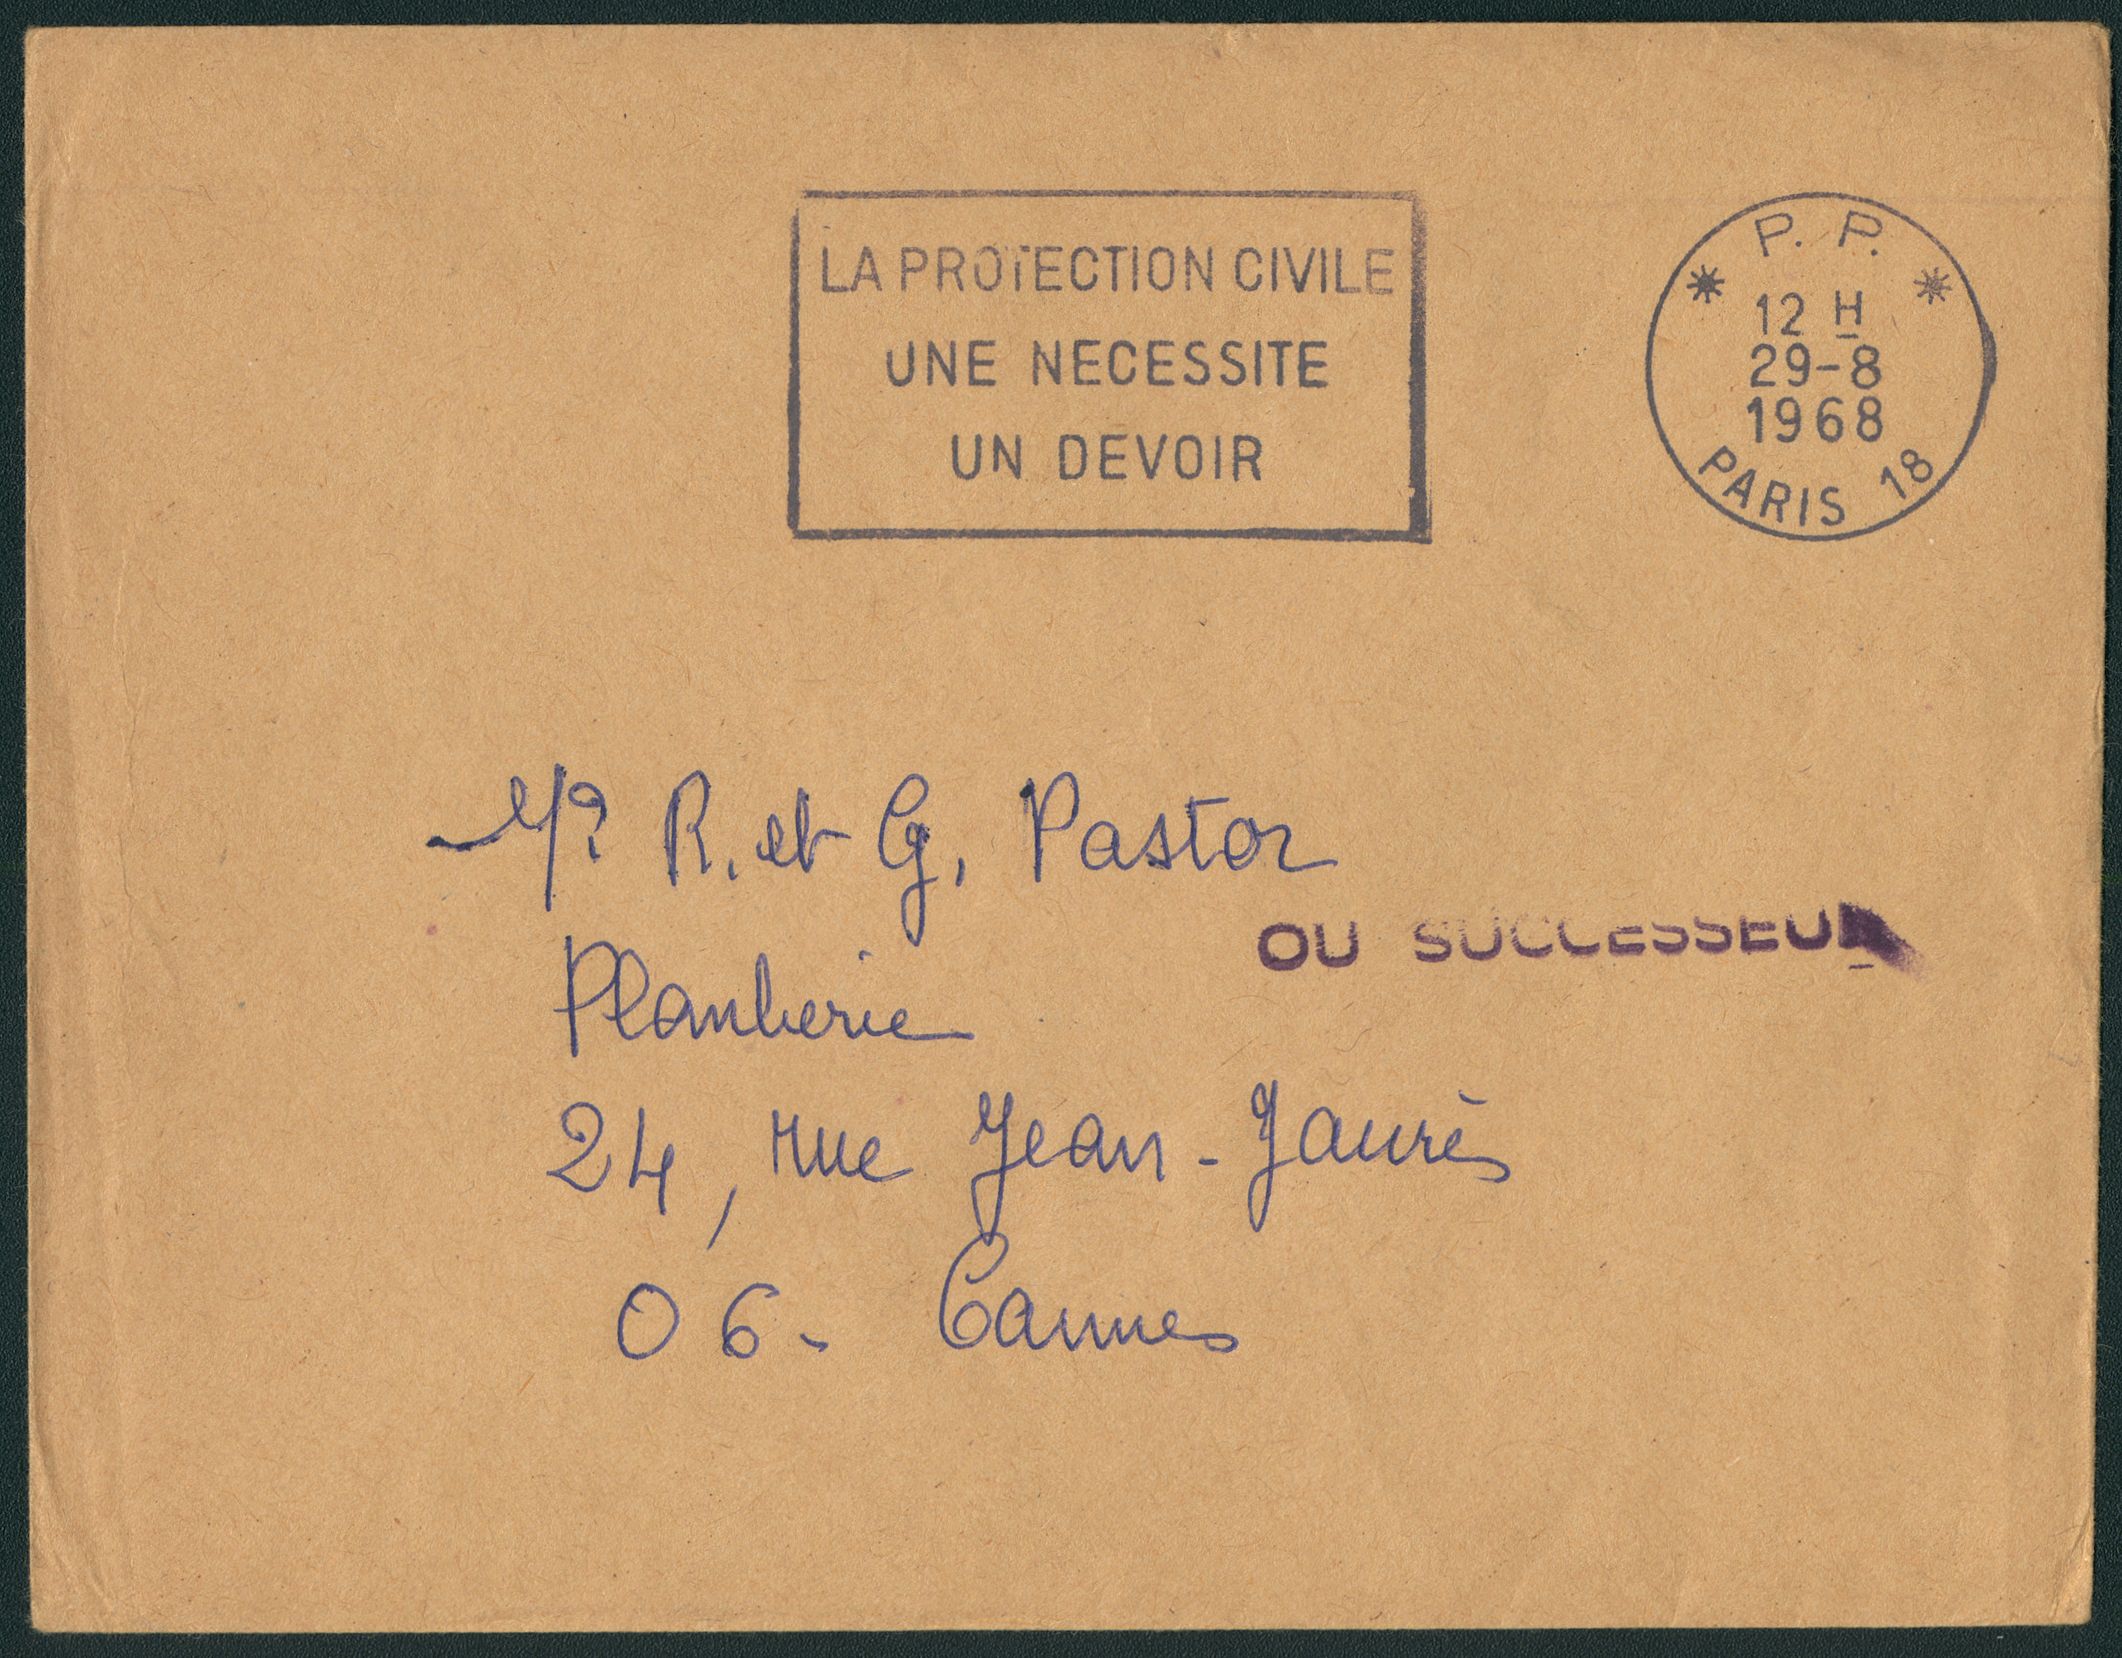 LA PROTECTION CIVILE
UNE NECESSITE
UN DEVOIR
P. P.
12 H
29-8
1968
PARIS 18
Mr R. et G. Pastor
OU SUCCESSEUR
Plomberie
24, rue Jean-Jaurès
06- Cannes